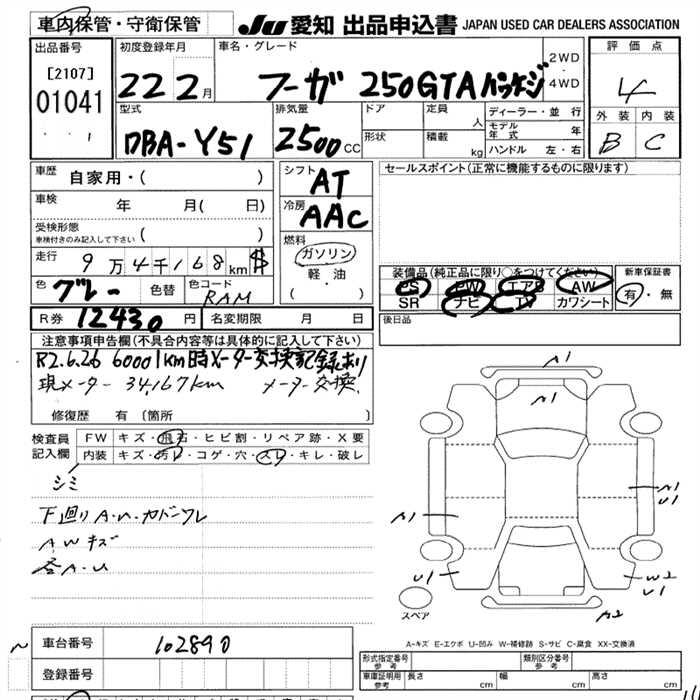 車内保管・守衛保管
JU 愛知 出品申込書 JAPAN USED CAR DEALERS ASSOCIATION
出品番号
[2107]
01041
初度登録年月
22 2月
車名・グレード
フーガ 250GTAパッケージ
2WD
・
4WD
評価点
4
外装 内装
B C
型式
DBA-Y51
排気量
2500cc
ドア
形状
定員
人
積載
kg
ディーラー・並行
モデル年式 年
ハンドル 左・右
車歴 自家用・( )
車検 年 月( 日)
受検形態
車検付きのみ記入して下さい ( )
走行 9万4千168km
色 グレー 色替 色コード RAM
シフト
AT
冷房
AAC
燃料
ガソリン
軽・油
( )
セールスポイント(正常に機能するものに限ります)
装備品(純正品に限り○をつけてください)
PS PW エアB AW
SR ナビ TV カワシート
新車保証書
有・無
R券 12430円 名変期限 月 日
後日品
注意事項申告欄(不具合内容等は具体的に記入して下さい)
R2.6.26 60001km時メーター交換記録あり
現メーター 34,167km メーター交換.
修復歴 有 [箇所
検査員
記入欄
FW キズ・飛石・ヒビ割・リペア跡・X要
内装 キズ・汚レ・コゲ・穴・スレ・キレ・破レ
シミ
下廻りA・U・カドスレ
AWキズ
全A・U
A1
A1
A1
U1
A1
U1
W2
U1
A2
スペア
A-キズ E-エクボ U-凹み W-補修跡 S-サビ C-腐食 XX-交換済
車台番号 102890
登録番号
形式指定番号
参考
類別区分番号
参考
車庫証明用
参考
長さ cm 幅 cm 高さ cm